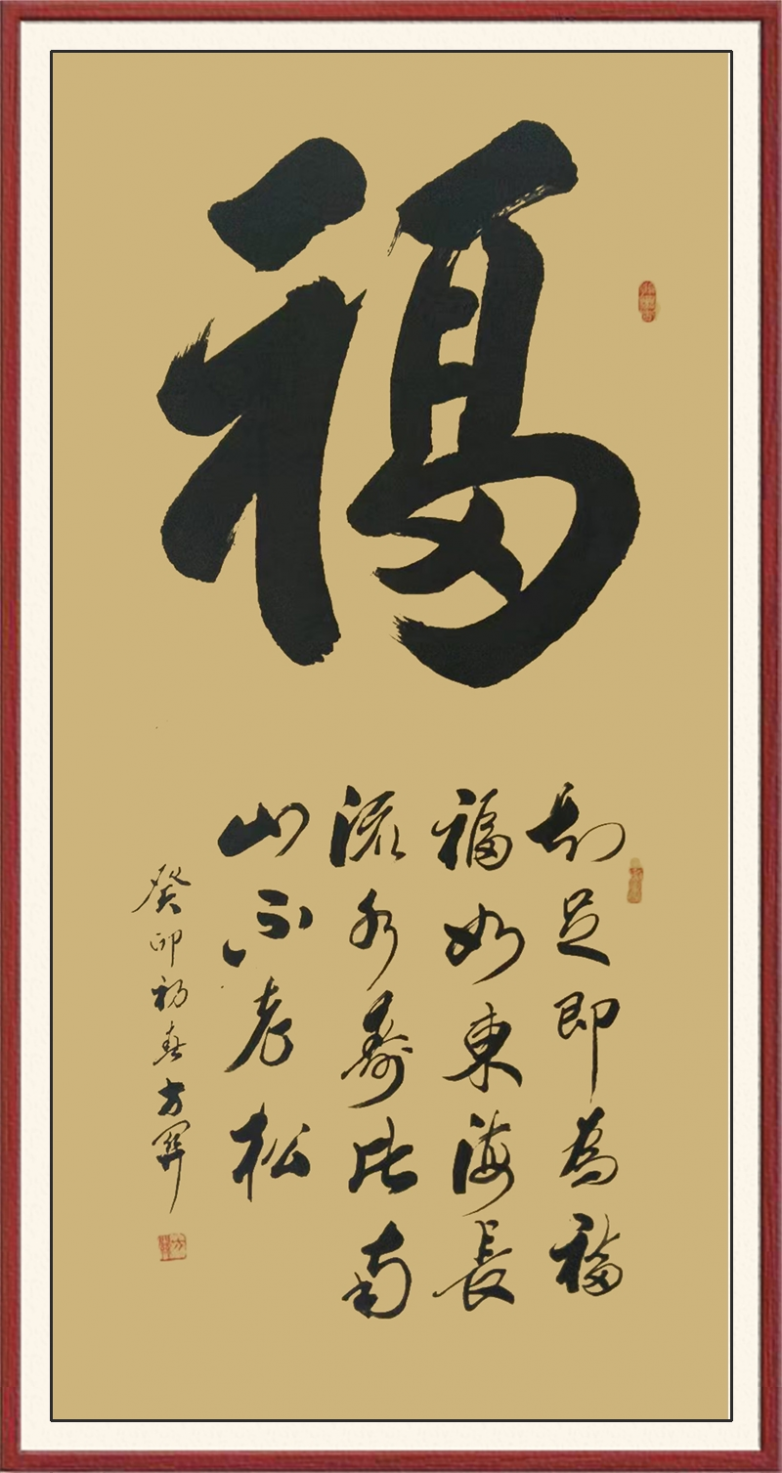 福
知足即為福
福如東海長
流水壽比南
山不老松
癸卯初春方羿